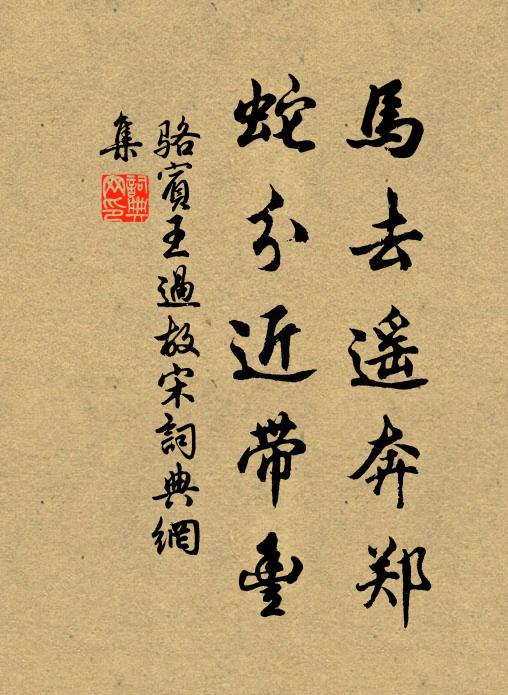 馬去遥奔郑
蛇分近带豊
駱賓王過故宋詞典網
集
詞典網印